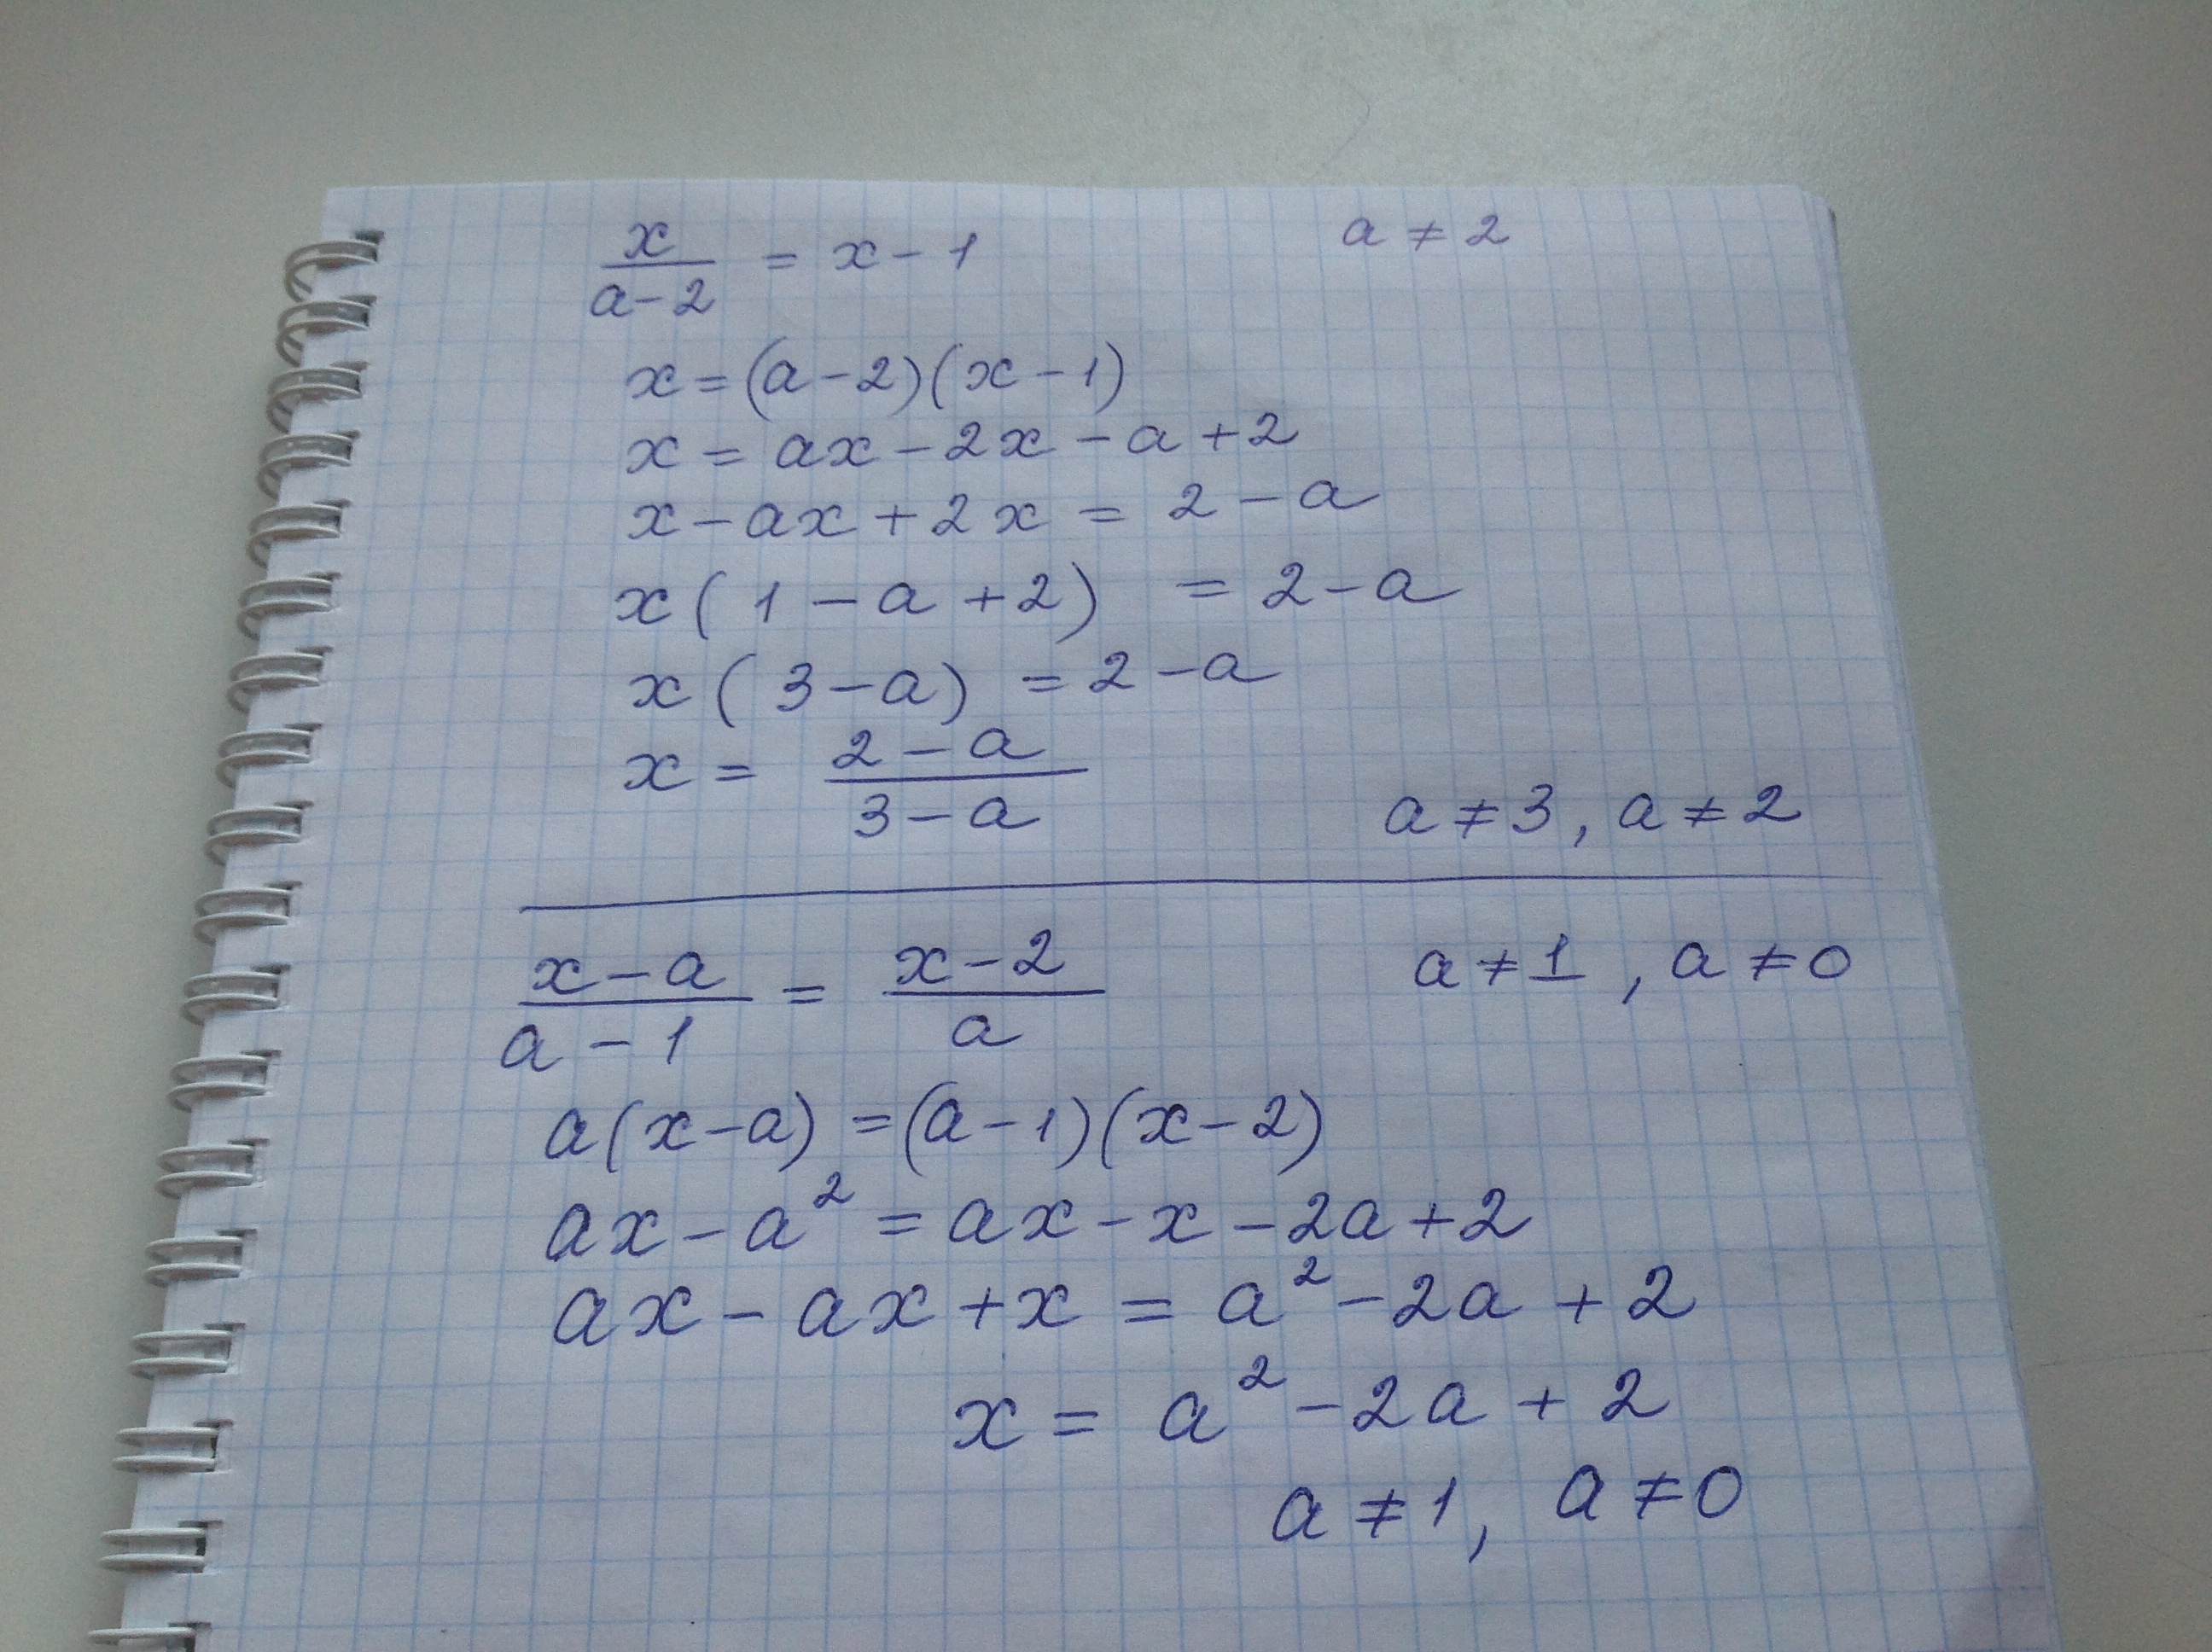 x/(a-2) = x-1 a ≠ 2
x=(a-2)(x-1)
x = ax-2x-a+2
x-ax+2x = 2-a
x(1-a+2) = 2-a
x(3-a) = 2-a
x = (2-a)/(3-a) a ≠ 3, a ≠ 2
(x-a)/(a-1) = (x-2)/a a ≠ 1, a ≠ 0
a(x-a) = (a-1)(x-2)
ax-a² = ax-x-2a+2
ax-ax+x = a²-2a+2
x = a²-2a+2
a ≠ 1, a ≠ 0